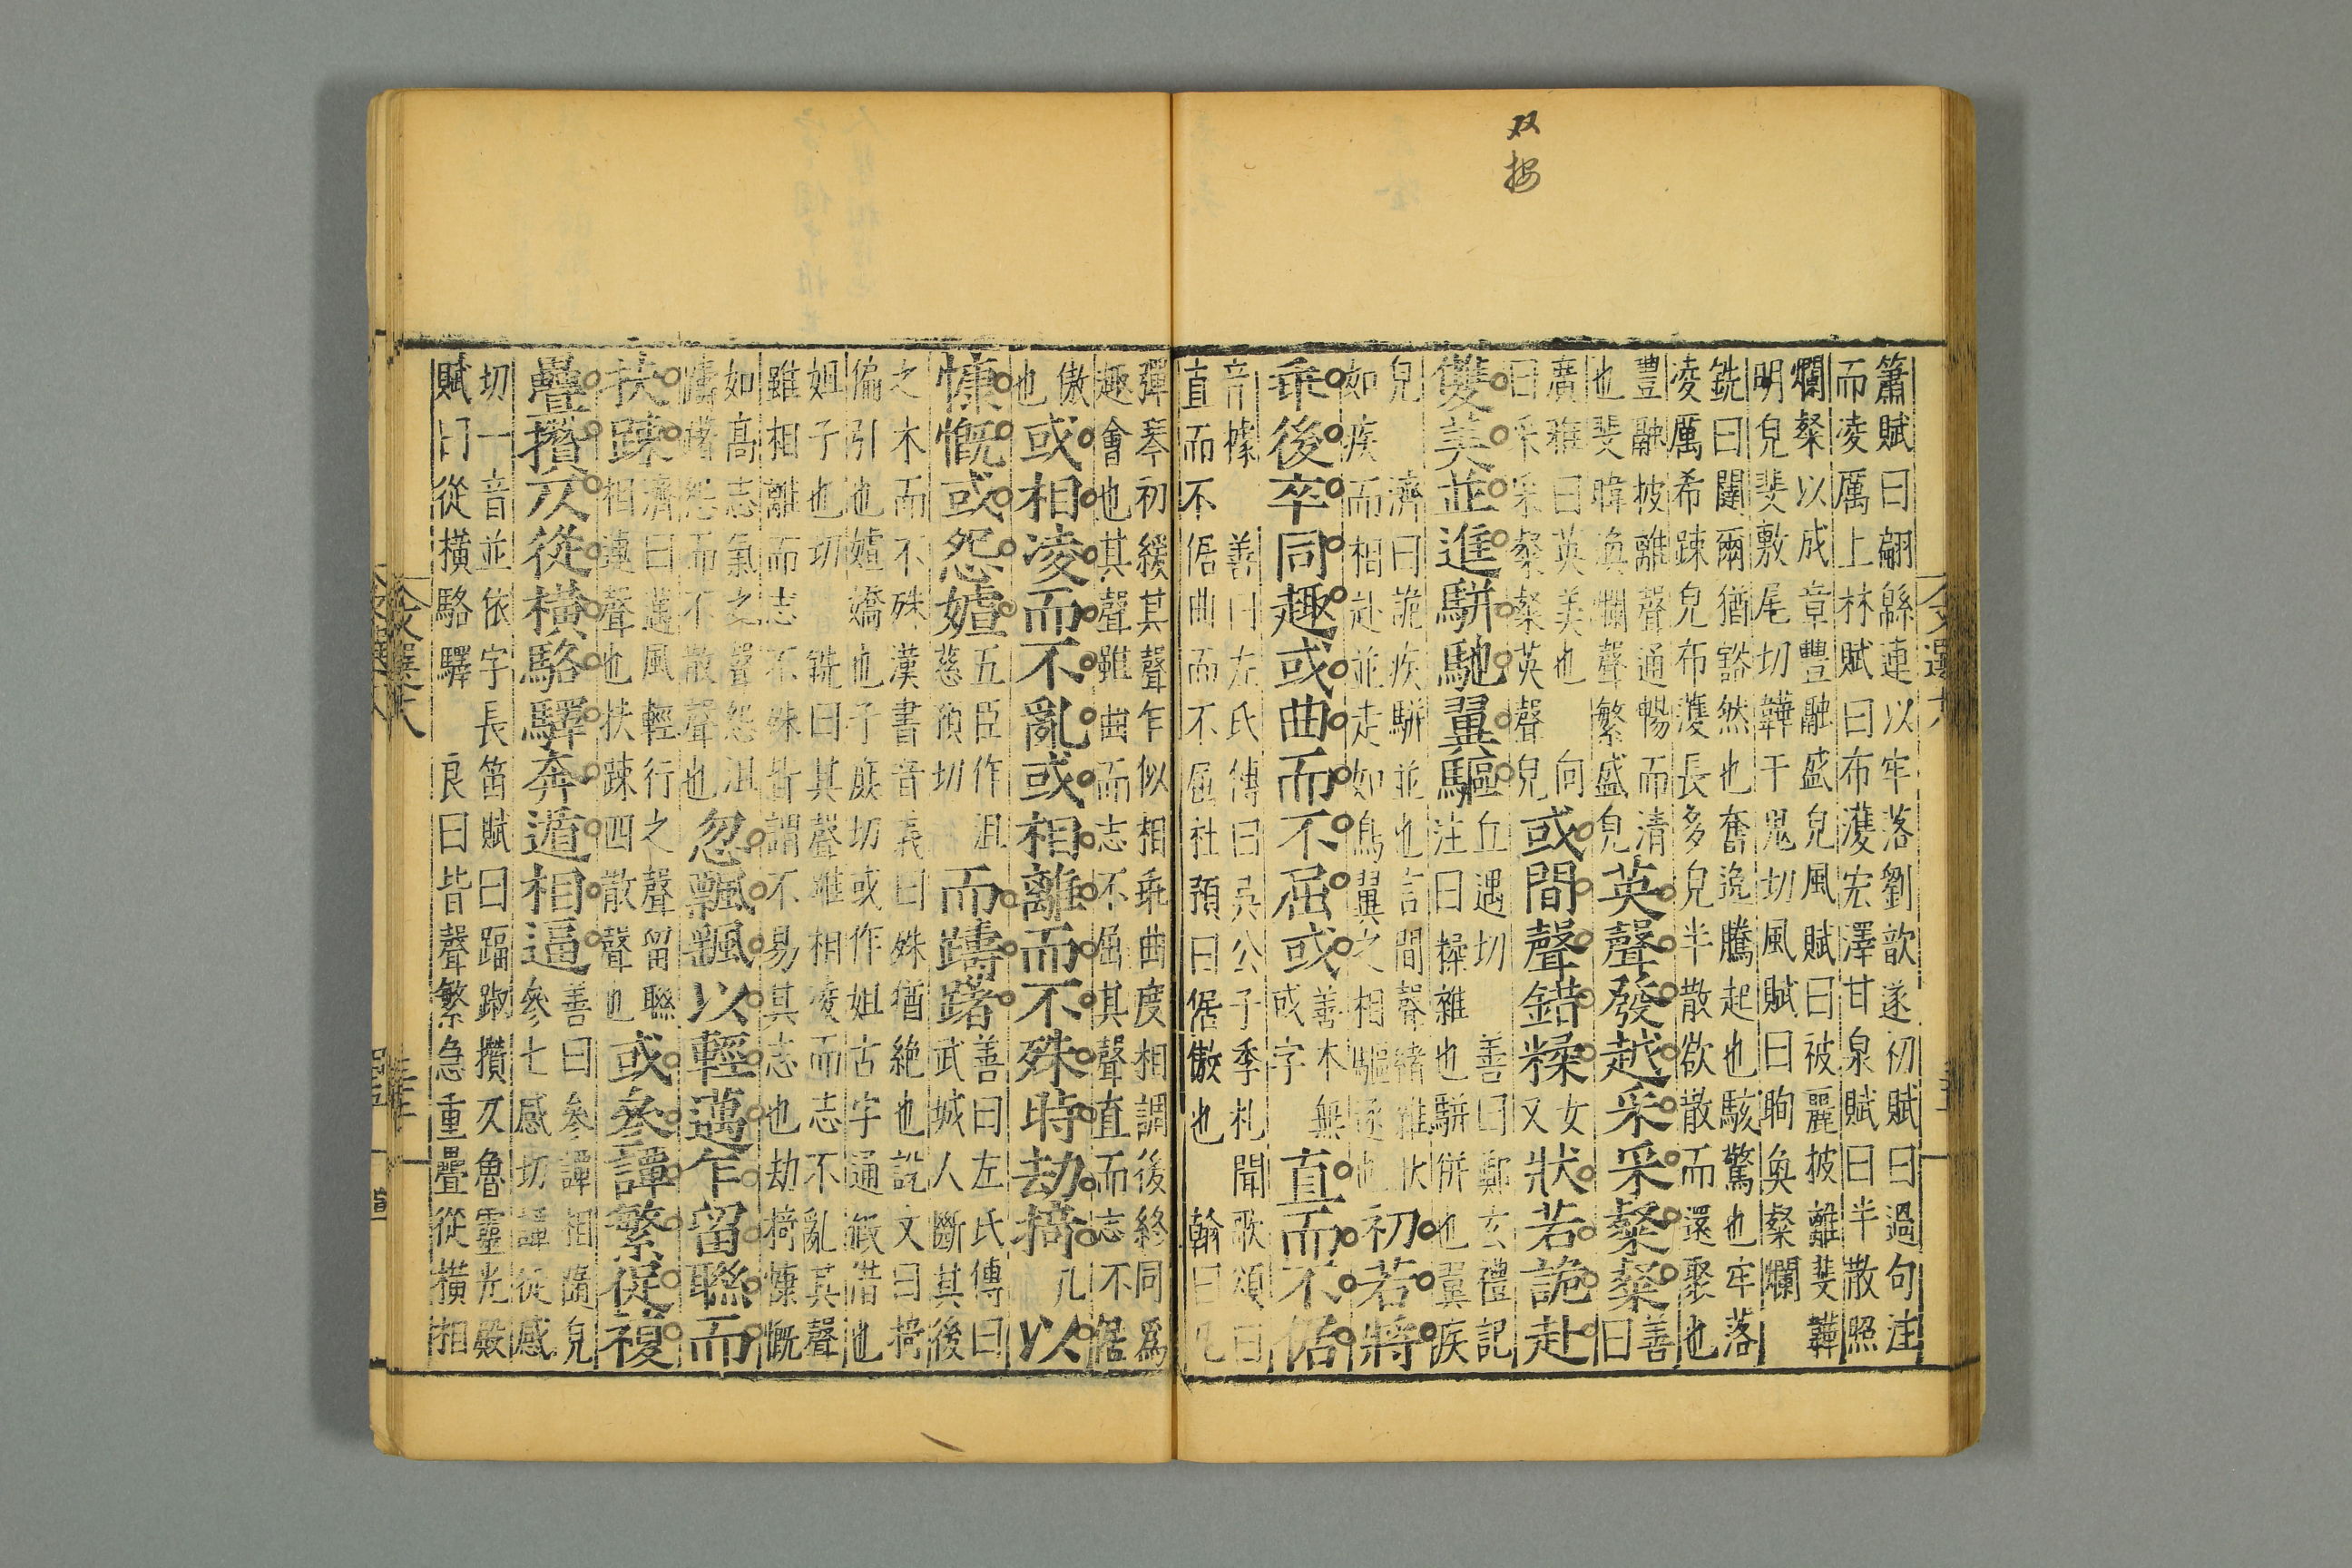 双按
簫賦曰翩緜連以牢落劉歆遂初賦曰過句注
而凌厲上林賦曰布濩宏澤甘泉賦曰半散照
爛粲以成章豐融盛皃風賦曰被麗披離斐韡
明皃斐敷尾切韡于鬼切風賦曰眴奐粲爛
銑曰闥爾猶豁然也奮逸騰起也駭驚也牢落
凌厲希踈皃布濩長多皃半散欲散而還聚也
豐融披離聲通暢而清
也斐韡奐爛聲繁盛皃
英聲發越采采粲粲
善
曰
廣雅曰英美也向
曰采采粲粲英聲皃
或間聲錯糅
女
又
狀若詭赴
雙美並進駢馳翼驅
丘遇切善曰鄭玄禮記
注曰操雜也駢併也翼疾
皃濟曰詭疾駢並也言間聲緒雜狀
如疾而相赴並走如鳥翼之相驅逐也
初若將
乖後卒同趣或曲而不屈或
善本無
或字
直而不倨
音據善曰左氏傳曰吳公子季札聞歌頌曰
直而不倨曲而不屈社預曰倨傲也翰曰凡
彈琴初緩其聲乍似相乖曲度相調後終同爲
趣會也其聲雖曲而志不屈其聲直而志不倨
傲
也
或相凌而不亂或相離而不殊時劫掎
几
以
慷慨或怨㜘
五臣作沮
慈預切
而躊躇
善曰左氏傳曰
武城人斷其後
之木而不殊漢書音義曰殊猶絶也説文曰掎
偏引也㜘嬌也子庶切或作姐古字通假借也
姐子也切銑曰其聲雖相凌而志不亂其聲
雖相離而志不殊皆謂不易其志也劫掎慷慨
如高志氣之聲怨沮
躊躇怨而不散聲也
忽飄飖以輕邁乍留聯而
扶踈
濟曰邁風輕行之聲留聯
相連聲也扶踈四散聲也
或參譚繁促複
疊攢仄從橫駱驛奔遁相逼
善曰參譚相隨皃
參七感切譚徒感
切一音並依字長笛賦曰踾踧攢仄魯靈光殿
賦曰從橫駱驛良曰皆聲繁急重疊從橫相